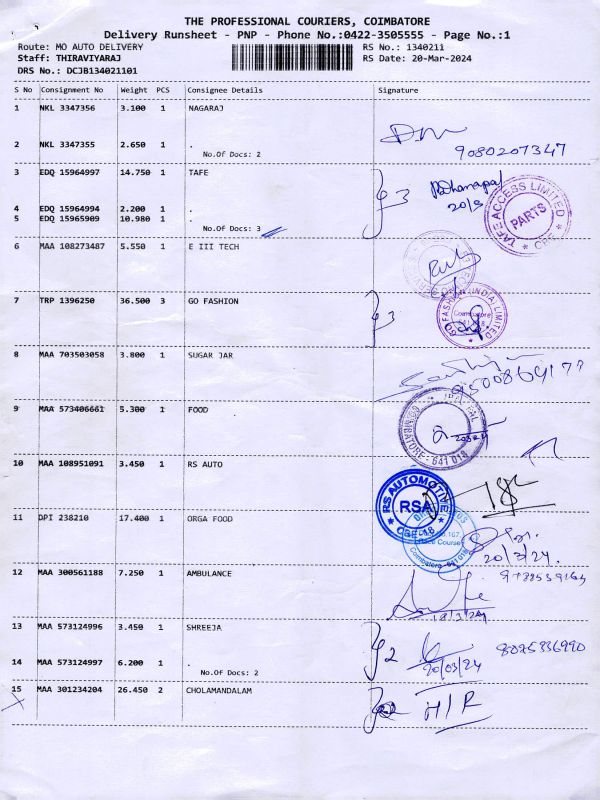 THE PROFESSIONAL COURIERS, COIMBATORE
Delivery Runsheet - PNP - Phone No.:0422-3505555 - Page No.:1
Route: MO AUTO DELIVERY RS No.: 1340211
Staff: THIRAVIYARAJ RS Date: 20-Mar-2024
DRS No.: DCJB134021101
S No Consignment No Weight PCS Consignee Details Signature
1 NKL 3347356 3.100 1 NAGARAJ
2 NKL 3347355 2.650 1 .
No.Of Docs: 2
9080207347
3 EDQ 15964997 14.750 1 TAFE
4 EDQ 15964994 2.200 1 .
5 EDQ 15965909 10.980 1 .
No.Of Docs: 3
3
20/3
TAFE ACCESS LIMITED
PARTS
CBE
6 MAA 108273487 5.550 1 E III TECH
7 TRP 1396250 36.500 3 GO FASHION
3
GO FASHION (INDIA) LIMITED
Coimbatore
8 MAA 703503058 3.800 1 SUGAR JAR
9 MAA 573406661 5.300 1 FOOD
COIMBATORE - 641 018
10 MAA 108951091 3.450 1 RS AUTO
RS AUTOMOTIVE
RSA
CBE-18
11 DPI 238210 17.400 1 ORGA FOOD
Race Course
Coimbatore - 641 018
20/3/24.
12 MAA 300561188 7.250 1 AMBULANCE
13 MAA 573124996 3.450 1 SHREEJA
14 MAA 573124997 6.200 1 .
No.Of Docs: 2
2
20/03/24
8025336990
15 MAA 301234204 26.450 2 CHOLAMANDALAM
H/R